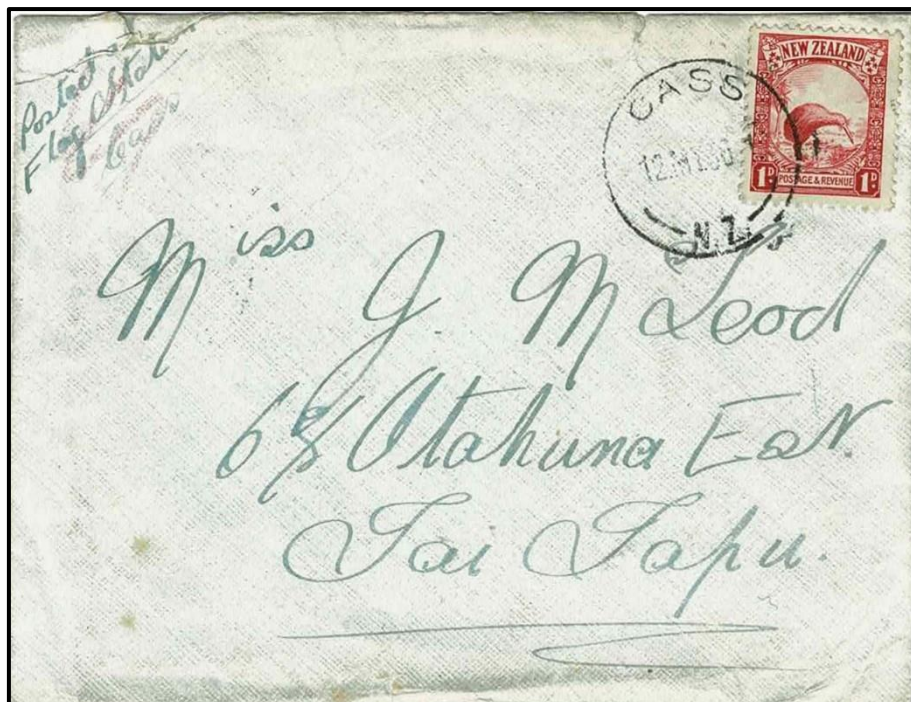 Posted
Flag Station
Cass
NEW ZEALAND
1D POSTAGE & REVENUE 1D
CASS
N.Z.
Miss J McLeod
c/o Otahuna Est.
Tai Tapu.